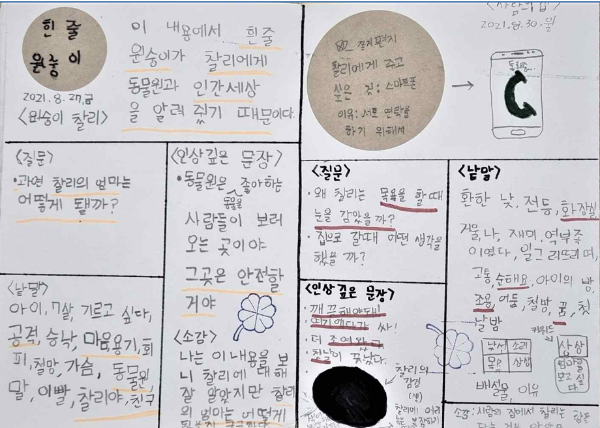 흰 줄
원숭이
2021.8.27.금
<원숭이 찰리>
이 내용에서 흰줄
원숭이가 찰리에게
동물원과 인간세상
을 알려 줬기 때문이다.
<질문>
•과연 찰리의 엄마는
어떻게 됐까?
<낱말>
아이, 7살, 기르고 싶다,
공격, 승낙, 마음, 용기, 회
피, 철망, 가슴, 동물원,
말, 이빨, 찰리야, 친구
<인상깊은 문장>
•동물원은 좋아하는
동물을
사람들이 보러
오는 곳이야
그곳은 안전할
거야
<소감>
나는 이 내용을 보
니 찰리에 대해
잘 알았지만 찰리
의 엄마는 어떻게
2021.8.30.월
찰리에게 주고
싶은 것: 스마트폰
이유: 서로 연락을
하기 위해서
<질문>
•왜 찰리는 목욕을 할 때
눈을 감았을까?
•집으로 갈때 어떤 생각을
했을까?
<인상 깊은 문장>
싸!
더 조여왔다
찰리의
감정
<낱말>
환한 낮, 전등, 화장실
거울, 나, 재미,
고통, 순해요, 아이의 방,
조용, 어둠, 철망, 꿈, 첫
날밤
키워드
낯선 소리
상상
배설물, 이유
소감: 사람의 집에서 찰리는